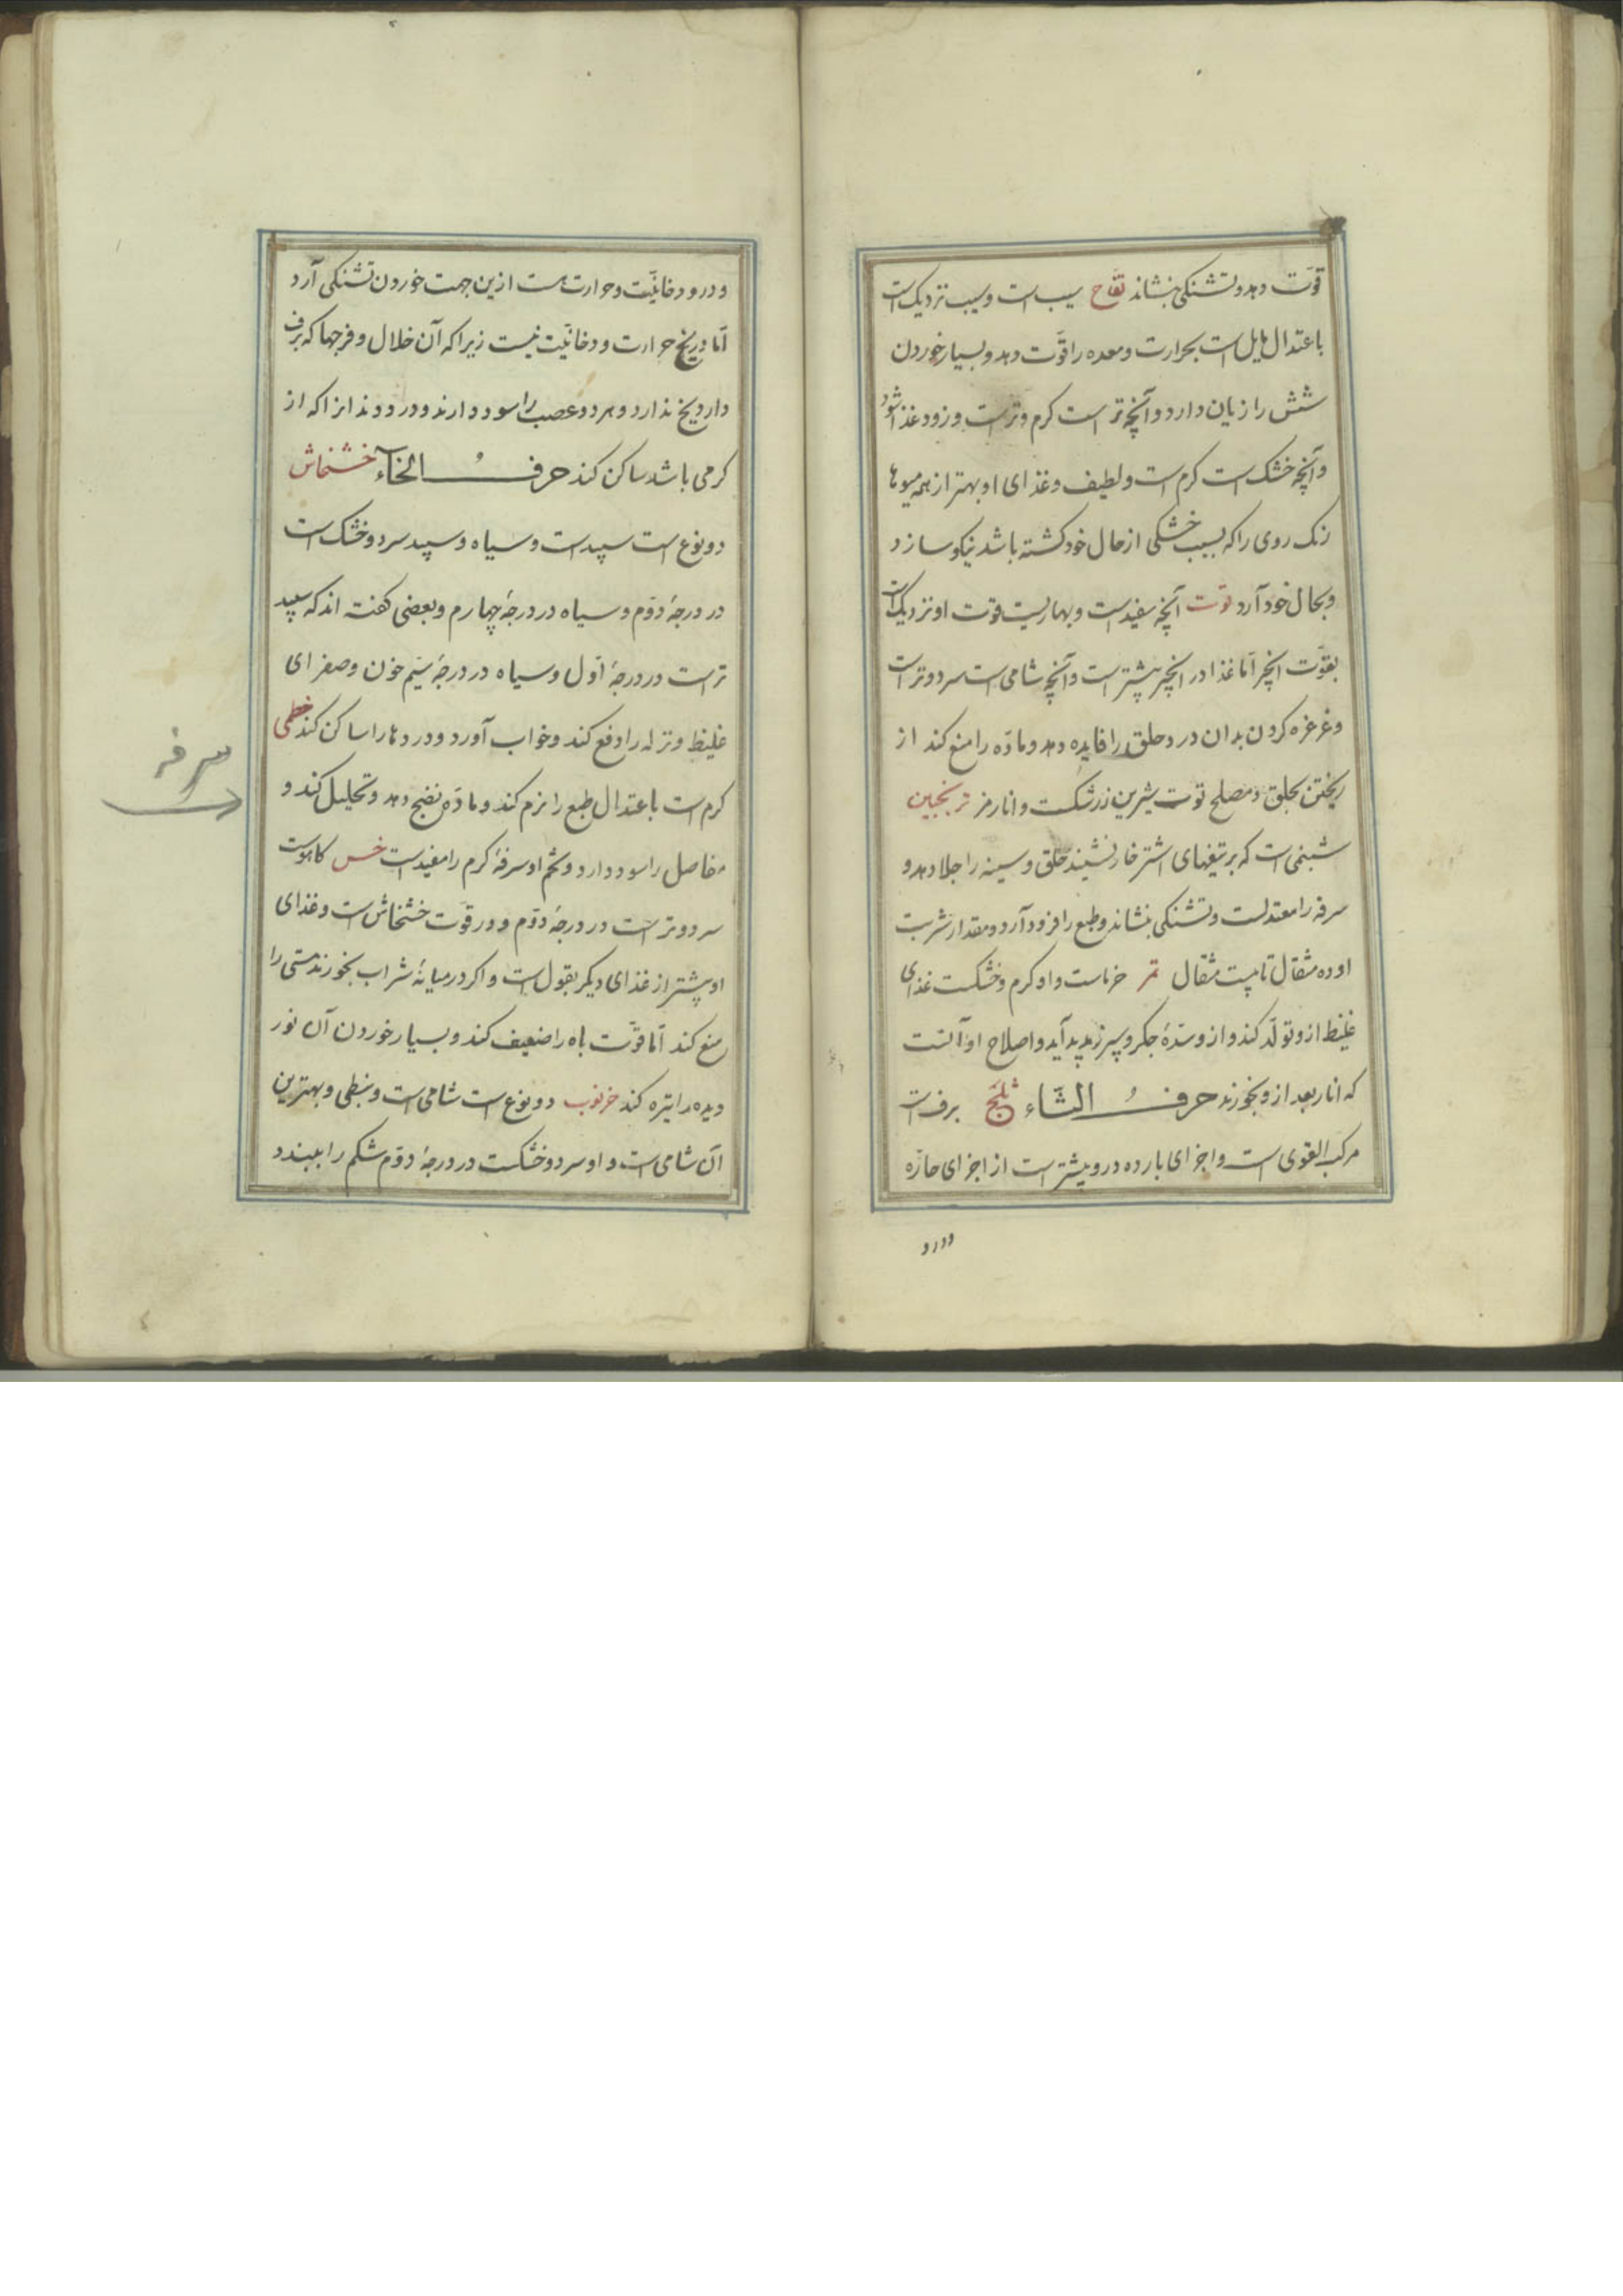 قوّت دهد و تشنکی بنشاند تفاح سیب است و سیب نزدیک است
باعتدال مایل است بحرارت و معده را قوّت دهد و بسیار خوردن
شش را زیان دارد و آنچه تر است کرم و تر است و زود غذا شود
و آنچه خشک است کرم است و لطیف و غذای او بهتر از همه میوها
رنک روی را که بسبب خشکی از حال خود کشته باشد نیکو سازد
و بحال خود آرد توت آنچه سفید است و بهاریست قوت او نزدیک است
بقوّت انجیر امّا غذا در انجیر بیشتر است و آنچه شامی است سرد و تر است
و غرغره کردن بدان درد حلق را فایده دهد و مادّه را منع کند از
ریختن بحلق و مصلح توت شیرین زرشکست و انار مز ترنجبین
شبنمی است که بر تیغهای اشتر خار نشیند حلق و سینه را جلا دهد و
سرفه را معتدلست و تشنکی بنشاند و طبع را فرود آرد و مقدار شربت
او ده مثقال تا بیست مثقال تمر خرماست و او کرم و خشکست غذای
غلیظ ازو تولّد کند و ازو سدّهٔ جکر و سپرز پدید آید و اصلاح او آنست
که انار بعد ازو بخورند حرفُ الثّاء ثلج برف است
مرکب القوی است و اجزای بارده درو بیشتر است از اجزای حارّه
و درو
و درو دخانیّت و حرارت هست ازین جهت خوردن تشنکی آرد
امّا در یخ حرارت و دخانیّت نیست زیرا که آن خلال و فرجها که برف
دارد یخ ندارد و هر دو عصب را سود دارند و درد دندانرا که از
کرمی باشد ساکن کند حرفُ الخآء خشخاش
دو نوع است سپید است و سیاه و سپید سرد و خشک است
در درجهٔ دوّم و سیاه در درجهٔ چهارم و بعضی کفته اند که سپید
تر است در درجهٔ اوّل و سیاه در درجهٔ سیّم خون و صفرای
غلیظ و نزله را دفع کند و خواب آورد و دردها را ساکن کند خطمی
کرم است باعتدال طبع را نرم کند و مادّه نضج دهد و تحلیل کند و
مفاصل را سود دارد و تخم او سرفهٔ کرم را مفید است خس کاهوست
سرد و تر است در درجهٔ دوّم و در قوّت خشخاش است و غذای
او بیشتر از غذای دیکر بقول است و اکر در میانهٔ شراب بخورند مستی را
منع کند امّا قوّت باه را ضعیف کند و بسیار خوردن آن نور
دیده را تیره کند خرنوب دو نوع است شامی است و نبطی و بهترین
آن شامی است و او سرد و خشکست در درجهٔ دوّم شکم را ببندد
سرفه